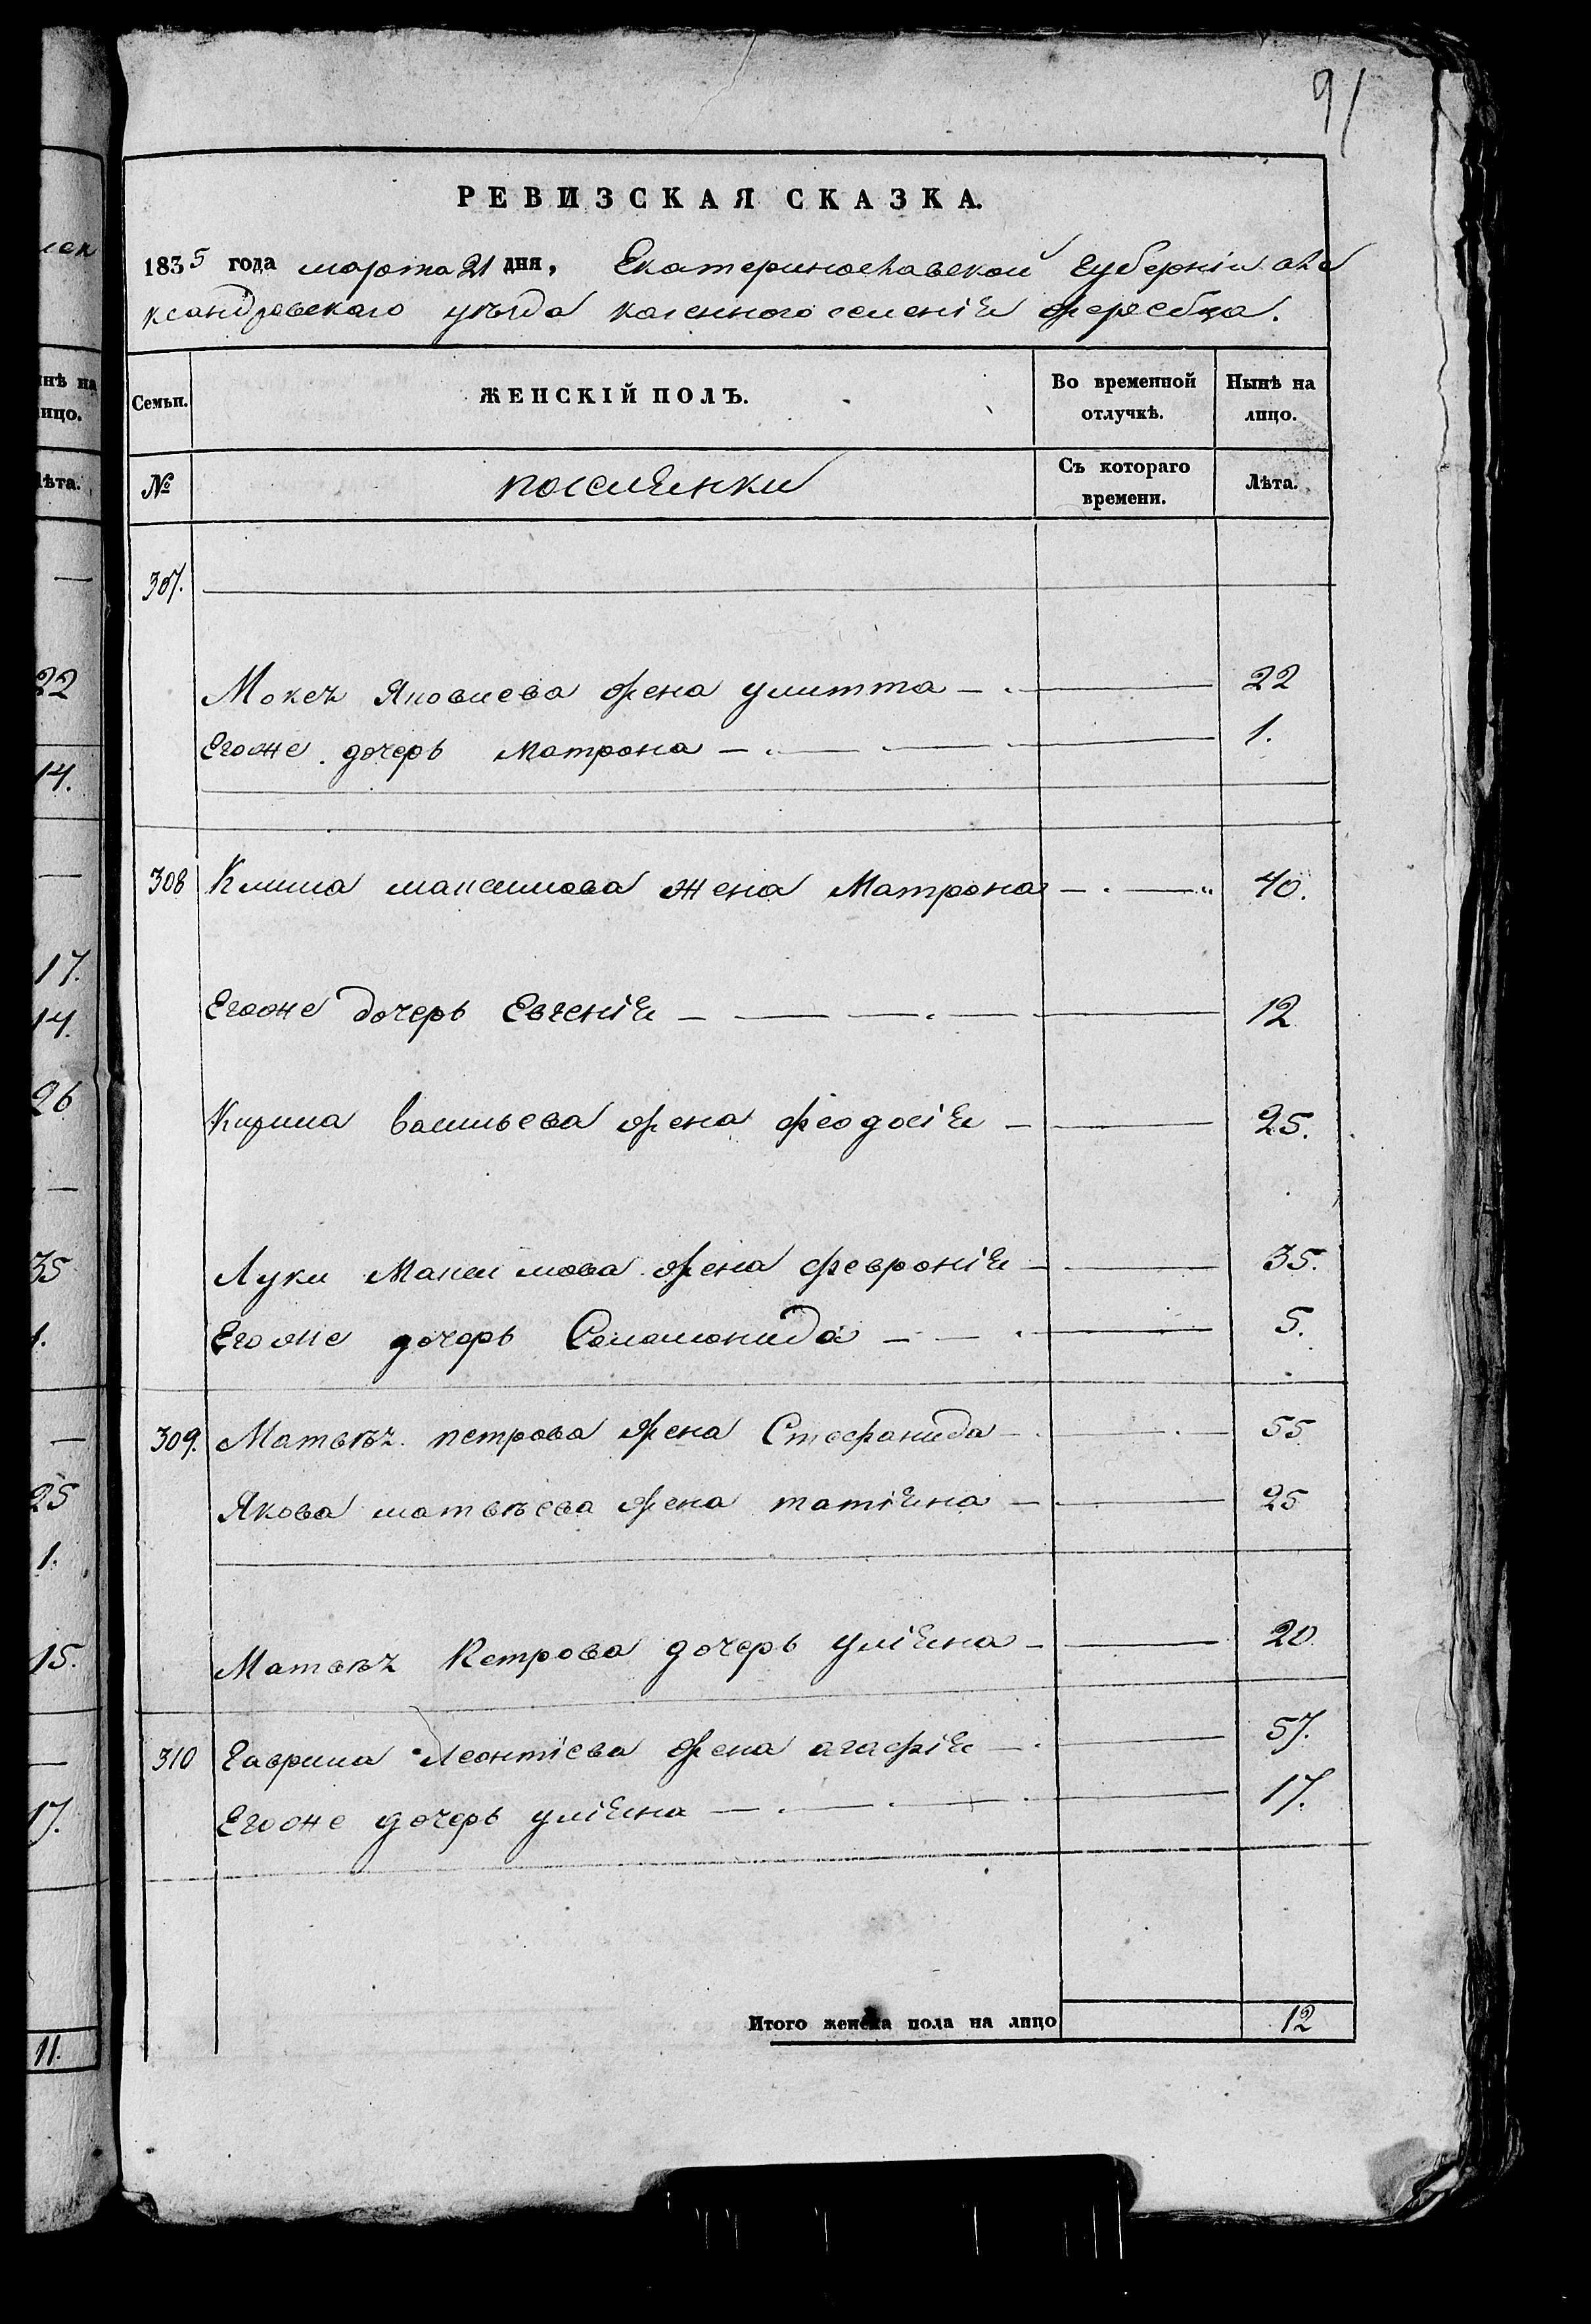 91
РЕВИЗСКАЯ СКАЗКА.
1835 года марта 21 дня, Екатеринославской губерніи але
ксандровскаго уѣзда казенного селенія жеребца.
Семьи. ЖЕНСКІЙ ПОЛЪ. Во временной отлучкѣ. Нынѣ на лицо.
№ поселянки Съ котораго времени. Лѣта.
307.
Мокея Яковлева жена улитта — 22
Егоже дочерь Матрона — 1.
308 Клима максимова жена Матрона — 40.
Егоже дочерь Евгенія — 12
Кирила васильева жена феодосія — 25.
Луки Максимова жена февронія — 35.
Егоже дочерь Соломонида — 5.
309. Матвѣя петрова жена Стефанида — 55
Якова матвѣева жена татіяна — 25
Матвѣя Петрова дочерь уліяна — 20
310 Гаврила Леонтіева жена агафія — 57.
Егоже дочерь уліяна — 17.
Итого женска пола на лицо 12
нѣ на
ицо.
ѣта.
22
14.
17.
14.
26
35
1.
25
1.
15.
17.
11.